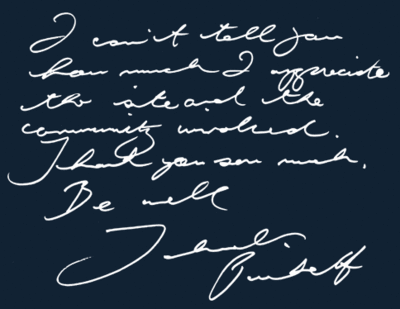 I can't tell you
how much I appreciate
the site and the
community involved.
Thank you som much.
Be well